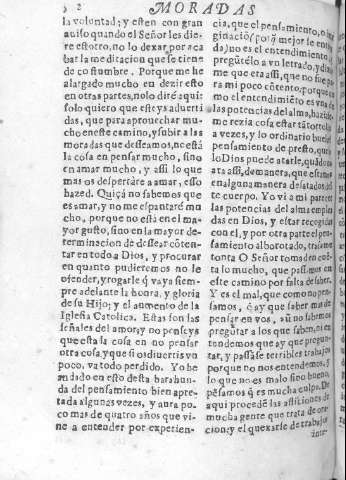 2
MORADAS
la voluntad; y estèn con gran
auiso quando el Señor les die-
re estotro, no lo dexar por aca
bar la meditacion que se tiene
de costumbre. Porque me he
alargado mucho en dezir esto
en otras partes, no lo dirè aqui:
solo quiero que esteys aduerti
das, que para aprouechar mu-
cho en este camino, y subir a las
moradas que desseamos, no està
la cosa en pensar mucho, sino
en amar mucho, y assi lo que
mas os despertare a amar, esso
hazed. Quiçà no sabemos que
es amar, y no me espantarè mu
cho, porque no està en el ma-
yor gusto, sino en la mayor de-
terminacion de dessear cõten-
tar en todo a Dios, y procurar
en quanto pudieremos no le
ofender, y rogarle q̃ vaya siem-
pre adelante la honra, y gloria
de su Hijo; y el aumento de la
Iglesia Catolica. Estas son las
señales del amor; y no penseys
que està la cosa en no pensar
otra cosa, y que si os diuertis vn
poco, va todo perdido. Yo he
andado en esto desta barahun-
da del pensamiento bien apre-
tada algunas vezes, y aura po-
co mas de quatro años que vi-
ne a entender por experien-
cia, que el pensamiento, o ima
ginaciõ (porq̃ mejor se entiẽ
da) no es el entendimiento
preguntèlo a vn letrado, y dixo
me que era assi, que no fue pa-
ra mi poco cõtento, porque co
mo el entendimiẽto es vna de
las potencias del alma, haziase
me rezia cosa estar tã tortolito
a vezes, y lo ordinario buela el
pensamiento de presto, que so
lo Dios puede atarle, quãdo nos
ata assi, de manera, que estamos
en alguna manera desatados des
te cuerpo. Yo via a mi parecer
las potencias del alma emplea
das en Dios, y estar recogidas
con el, y por otra parte el pen-
samiento alborotado, traiame
tonta. O Señor tomad en cuẽ-
ta lo mucho, que passamos en
este camino por falta de saber.
Y es el mal, que como no pen-
samos, q̃ ay que saber mas de
pensar en vos, aũ no sabemos
pregũtar a los que saben, ni en
tendemos que ay que pregun-
tar, y passãse terribles trabajos
porque no nos entendemos. Y
lo que no es malo sino bueno,
pẽsamos q̃ es mucha culpa. De
aqui procedẽ las afliciones de
mucha gente que trata de ora-
cion: y el quexarse de trabajos
inte-